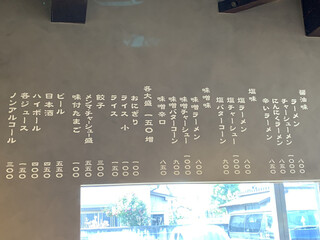 醤油味
ラーメン 八〇〇
チャーシューメン 一〇〇〇
にんにくラーメン 八五〇
辛いラーメン 八五〇
塩味
塩ラーメン 八〇〇
塩チャーシュー 一〇〇〇
塩バターコーン 九〇〇
味噌味
味噌ラーメン 八〇〇
味噌チャーシュー 一〇〇〇
味噌バターコーン 九〇〇
味噌辛口 八五〇
各大盛 一五〇増
おにぎり 一〇〇
ライス 小 一〇〇
ライス 一五〇
餃子 三〇〇
メンマ・チャーシュー盛 五五〇
味付たまご 一〇〇
ビール 五五〇
日本酒 四〇〇
ハイボール 四五〇
各ジュース 一五〇
ノンアルコール 三〇〇